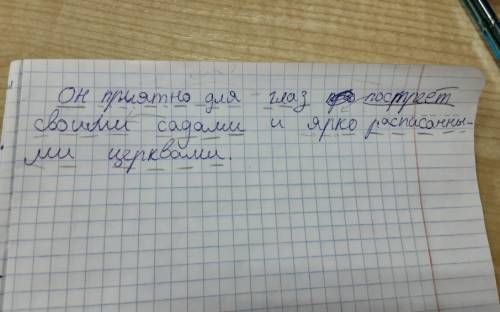 Он приятно для глаз построет
своими садами и ярко расписанны-
ми церквами.